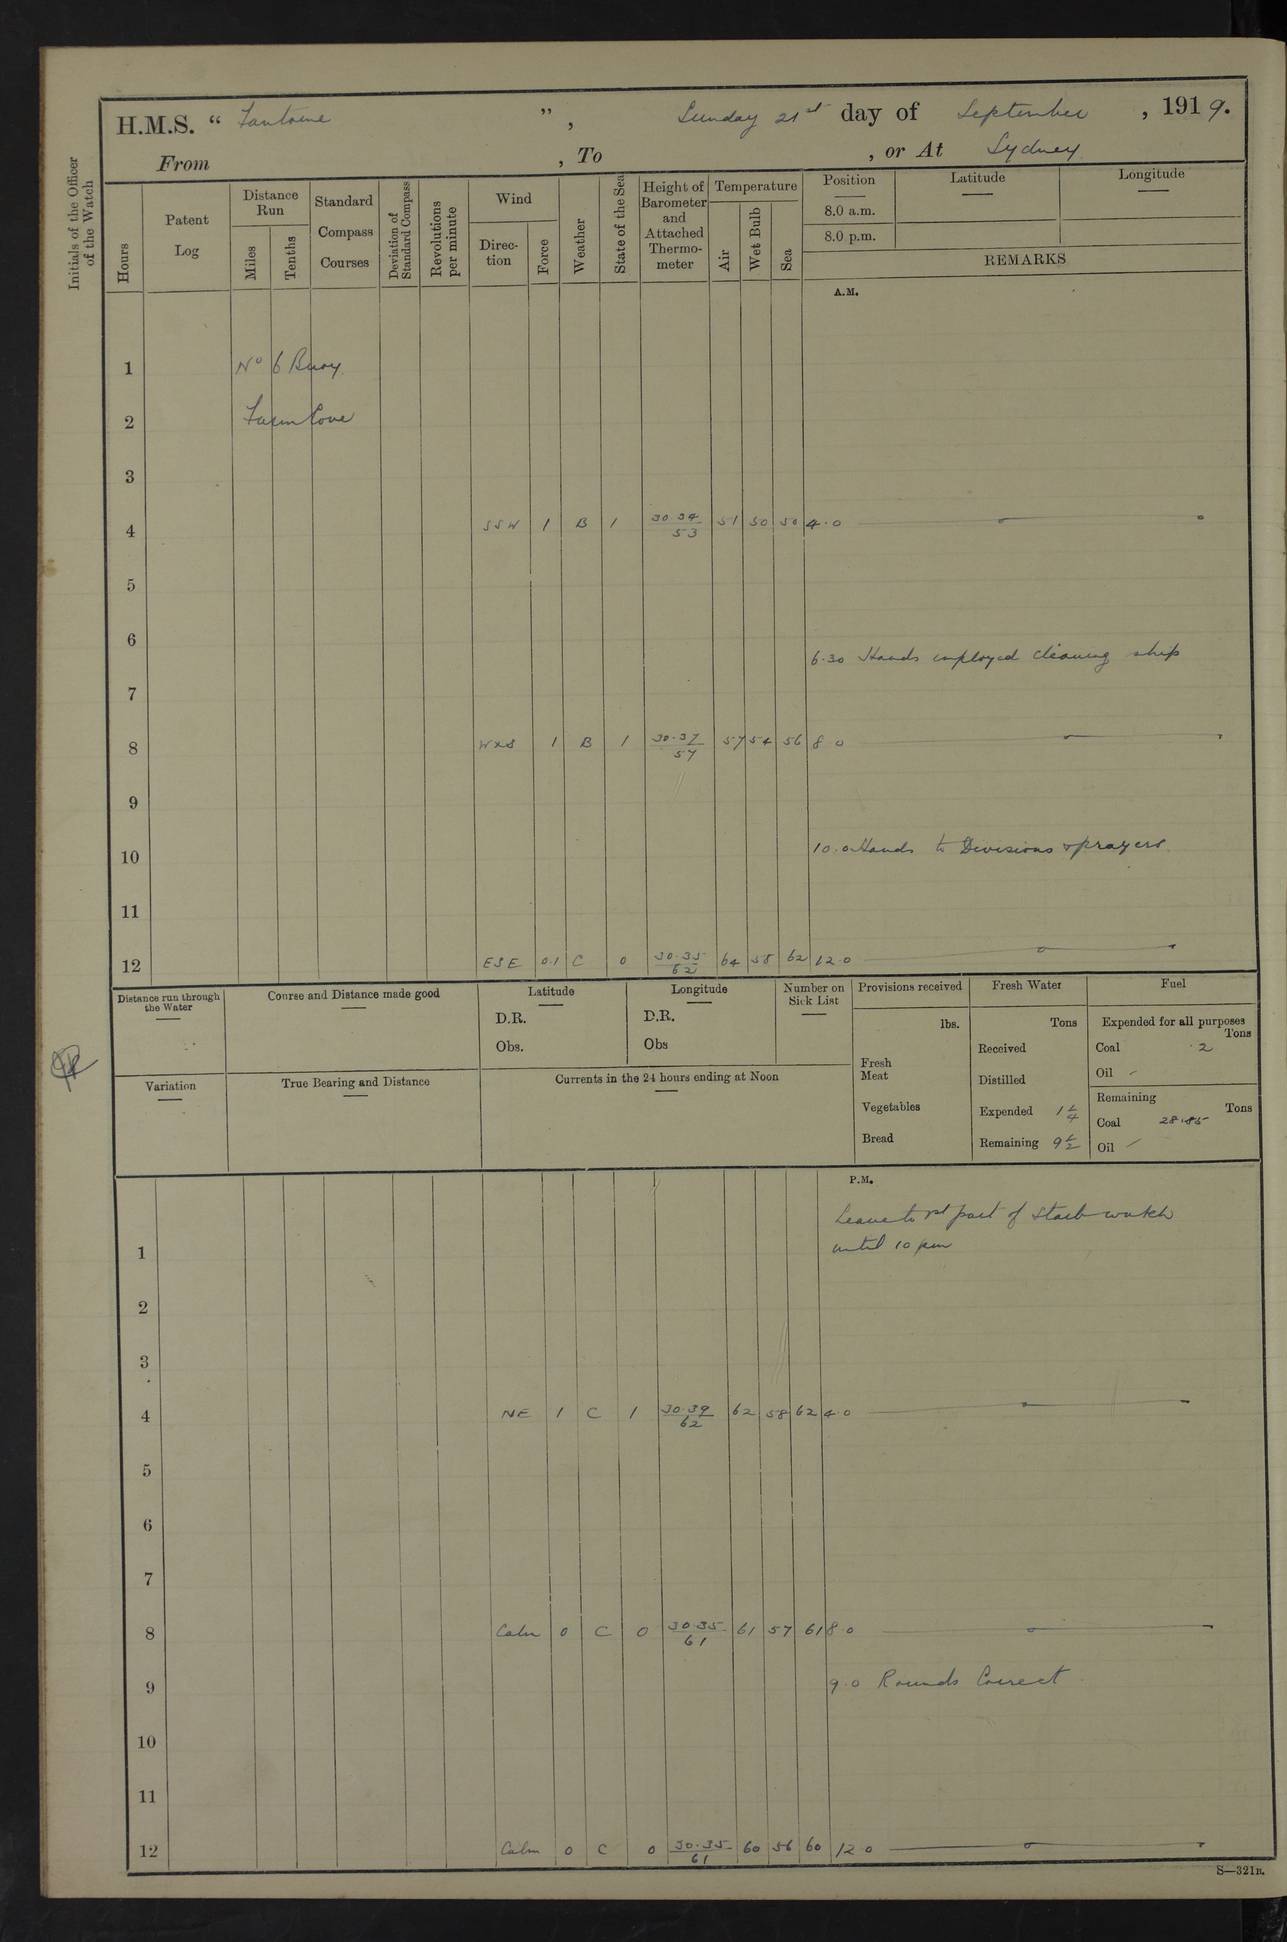 H.M.S. “ Fantome ” , Sunday 21st day of September , 1919.
From , To , or At Sydney
Initials of the Officer of the Watch
Hours
Patent Log
Distance Run
Miles
Tenths
Standard Compass Courses
Deviation of Standard Compass
Revolutions per minute
Wind
Direc- tion
Force
Weather
State of the Sea
Height of Barometer and Attached Thermo- meter
Temperature
Air
Wet Bulb
Sea
Position
8.0 a.m.
8.0 p.m.
Latitude
Longitude
REMARKS
A.M.
1 No 6 Buoy
2 Farm Cove
3
4 SSW 1 B 1 30.34 / 53 51 50 50 4.0
5
6
6.30 Hands employed cleaning ship
7
8 WxS 1 B 1 30.37 / 57 57 54 56 8 0
9
10 10.0 Hands to Divisions & prayers
11
12 ESE 0.1 C 0 30.35 / 62 64 58 62 12.0
Distance run through the Water
Course and Distance made good
Latitude
D.R.
Obs.
Longitude
D.R.
Obs
Number on Sick List
Provisions received
lbs.
Fresh Meat
Vegetables
Bread
Fresh Water
Tons
Received
Distilled
Expended 1 1/4
Remaining 9 1/2
Fuel
Expended for all purposes
Tons
Coal .2
Oil -
Remaining
Tons
Coal 28.85
Oil -
Variation
True Bearing and Distance
Currents in the 24 hours ending at Noon
P.M.
Leave to 1st part of Starb watch
until 10 pm
1
2
3
4 NE 1 C 1 30.39 / 62 62 58 62 4.0
5
6
7
8 Calm 0 C 0 30.35 / 61 61 57 61 8.0
9 9.0 Rounds Correct
10
11
12 Calm 0 C 0 30.35 / 61 60 56 60 12 0
S—321B.